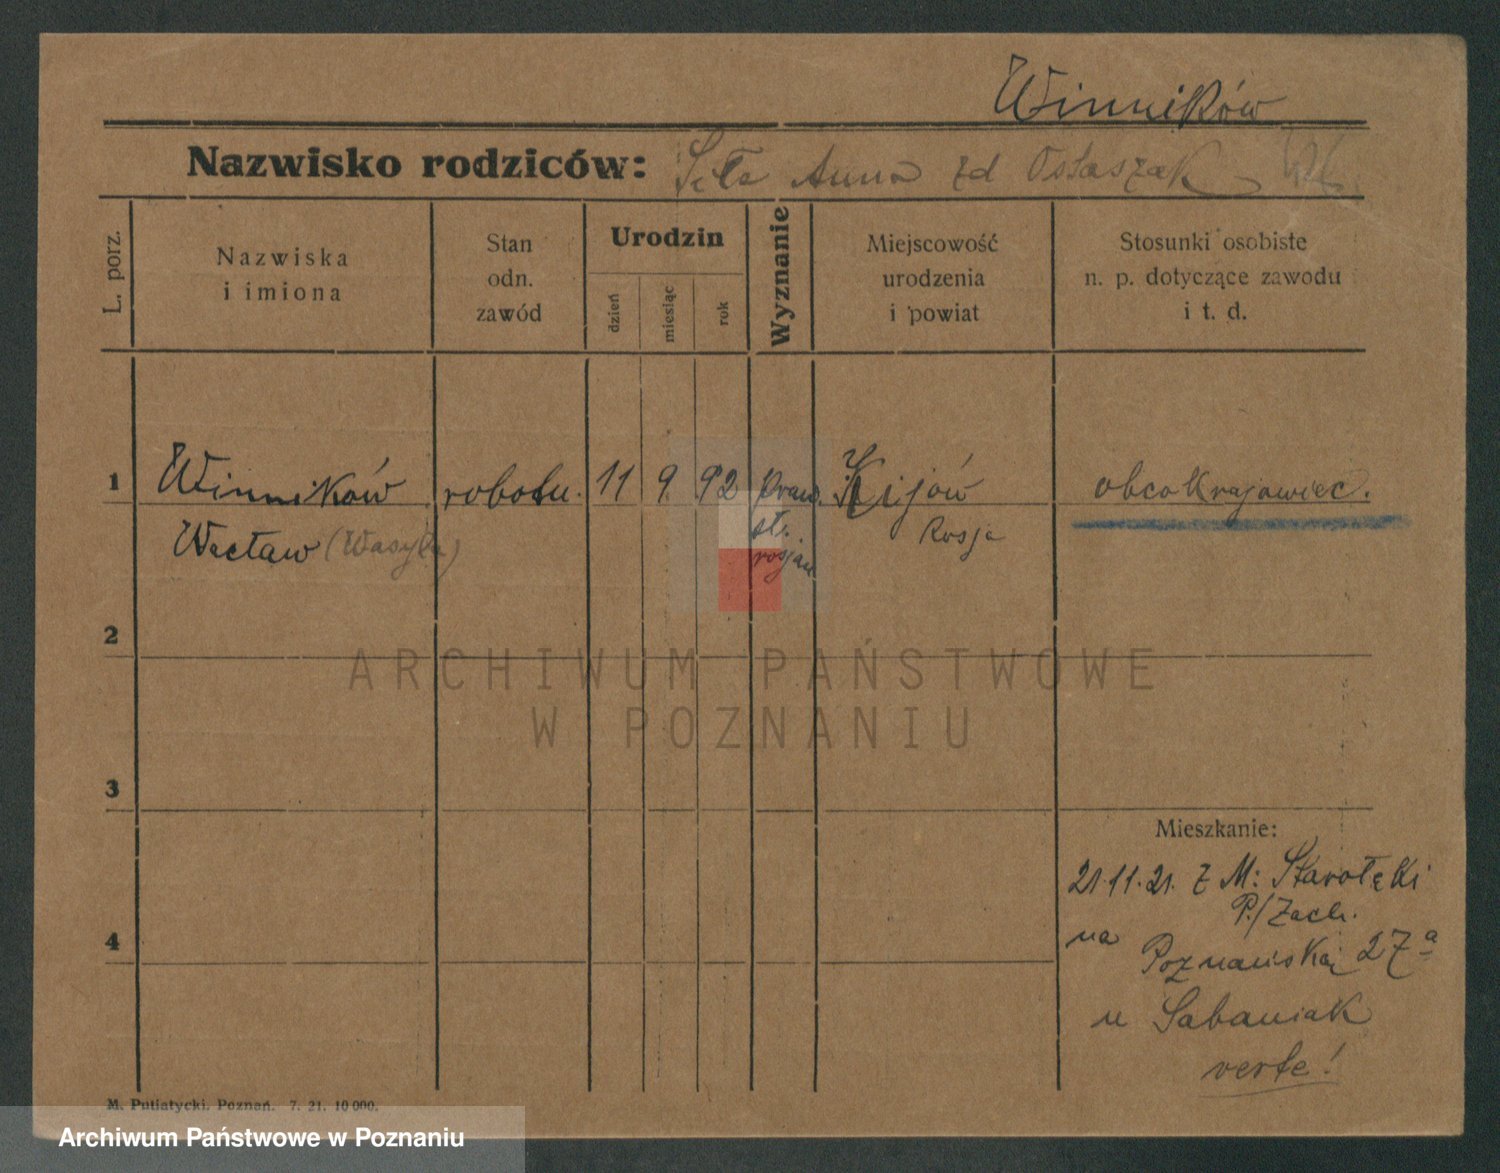 Winników
Nazwisko rodziców: Anna zd Ostaszak
L. porz.
Nazwiska
i imiona
Stan
odn.
zawód
Urodzin
dzień
miesiąc
rok
Wyznanie
Miejscowość
urodzenia
i powiat
Stosunki osobiste
n. p. dotyczące zawodu
i t. d.
1
Winników robotn. 11 9 92 praw. Kijów obcokrajowiec.
Wacław (Wasyla) sł. Rosja
rosjan
2
ARCHIWUM PAŃSTWOWE
W POZNANIU
3
Mieszkanie:
21.11.21. z M: Starołęki
P./Zach.
4
na Poznańską 27a
u Sabaniak
verte!
M. Putiatycki. Poznań. 7. 21. 10 000.
Archiwum Państwowe w Poznaniu